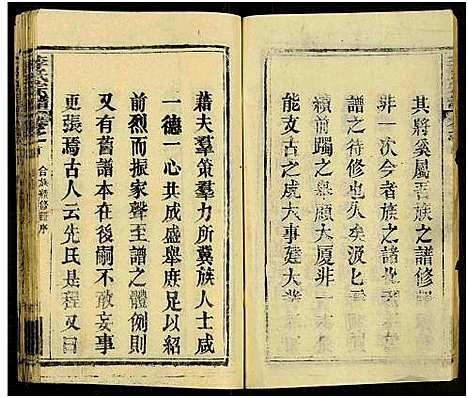 其將奚屬吾族之譜修
非一次今者族之譜
譜之待修也久矣汲匕焉
續前躅之舉顧大廈非一
能支古之成大事建大業
藉夫羣策羣力所冀族人士咸
一德一心共成盛舉庶足以紹
前烈而振家聲至譜之體例則
又有舊譜本在後嗣不敢妄事
更張焉古人云先氏是程又曰
李氏宗譜
卷首
合族續修譜序